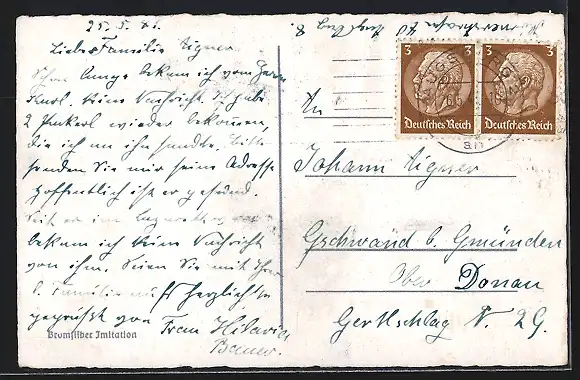 25. 5. 41.
Liebe Familie Aigner.
Schon lange bekam ich vom Herrn
Karl keine Nachricht. Ich habe
2 Packerl wieder bekommen,
die ich an ihn sandte. Bitte
senden Sie mir seine Adresse
hoffentlich ist er gesund.
Seit er im Lazarett
bekam ich keine Nachricht
von ihm. Seien Sie mit Ihrer
l. Familie herzlichst
gegrüßt von Frau Hilaria
Bauer.
Bromsilber Imitation
3 3
Deutsches Reich Deutsches Reich
An
Johann Aigner
Gschwand b. Gmünden
Ober Donau
Gerthschlag N. 29.